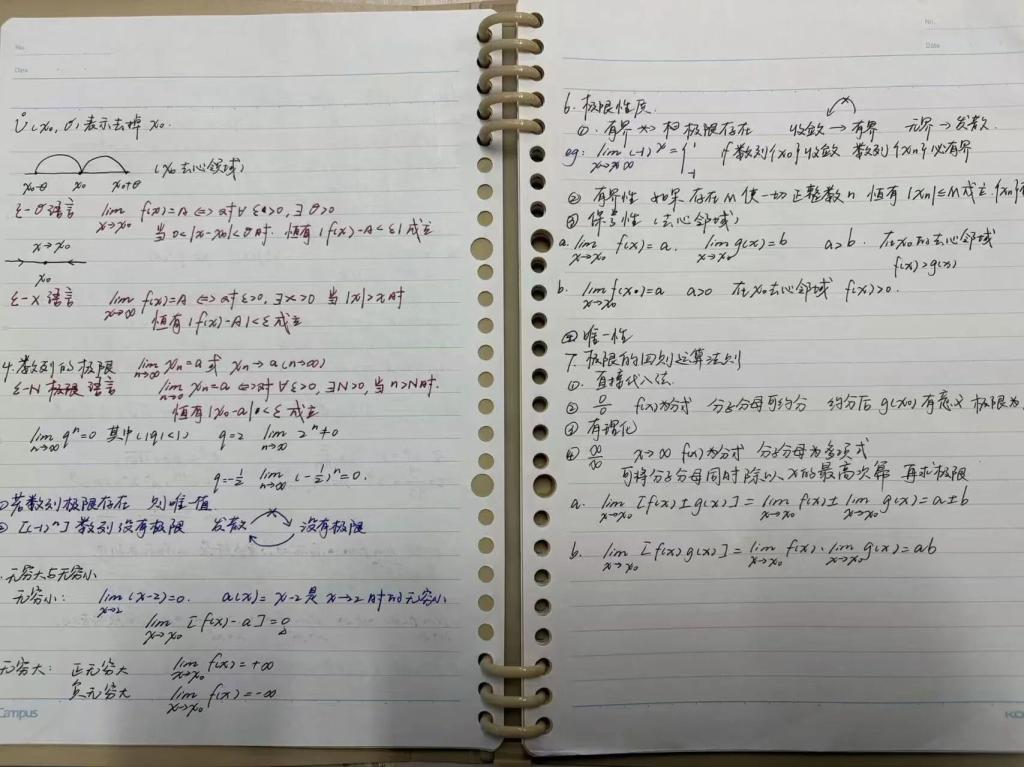 No.
Date
Ů(x₀,σ) 表示去掉 x₀.
x₀-θ x₀ x₀+θ (x₀去心领域)
ε-θ语言 lim x→x₀ f(x)=A ⇔ 对∀ε>0,∃θ>0
当0<|x-x₀|<θ时. 恒有|f(x)-A<ε|成立
x→x₀
x₀
ε-X语言 lim x→∞ f(x)=A ⇔ 对ε>0,∃x>0 当|x|>x时
恒有|f(x)-A|<ε成立
4.数列的极限 lim n→∞ xn=a 或 xn→a(n→∞)
ε-N极限语言 lim n→∞ xn=a ⇔对∀ε>0,∃N>0,当n>N时.
恒有|x₀-a|<ε成立
lim n→∞ qⁿ=0 其中(|q|<1) q=2 lim n→∞ 2ⁿ≠0
q=-1/2 lim n→∞ (-1/2)ⁿ=0.
①若数列极限存在 则唯一值
② [(-1)ⁿ]数列没有极限 发散 没有极限
.无穷大与无穷小
无穷小: lim x→2 (x-2)=0. a(x)=x-2是x→2时的无穷小
lim x→x₀ [f(x)-a]=0
无穷大: 正无穷大 lim x→x₀ f(x)=+∞
负无穷大 lim x→x₀ f(x)=-∞
Campus
No.
Date
6.极限性质.
①.有界 极限存在 收敛→有界 无界→发散.
eg: lim x→∞ (-1)ˣ={1 -1 数列{x₀}收敛 数列{xn}必有界
② 有界性 如果存在M使一切正整数n 恒有|xn|≤M成立.{xn}有
③ 保号性(去心邻域)
a. lim x→x₀ f(x)=a. lim x→x₀ g(x)=b a>b. 在x₀的去心邻域
f(x)>g(x)
b. lim x→x₀ f(x₀)=a a>0 在x₀去心邻域 f(x)>0.
④唯一性
7.极限的四则运算法则
①.直接代入法.
② 0/0 f(x)为分式 分子分母可约分 约分后g(x₀)有意义 极限为
③有理化
④ ∞/∞ x→∞ f(x)为分式 分子分母为多项式
可将分子分母同时除以x的最高次幂 再求极限
a. lim x→x₀ [f(x)±g(x)]=lim x→x₀ f(x)±lim x→x₀ g(x)=a±b
b. lim x→x₀ [f(x)g(x)]=lim x→x₀ f(x)·lim x→x₀ g(x)=ab